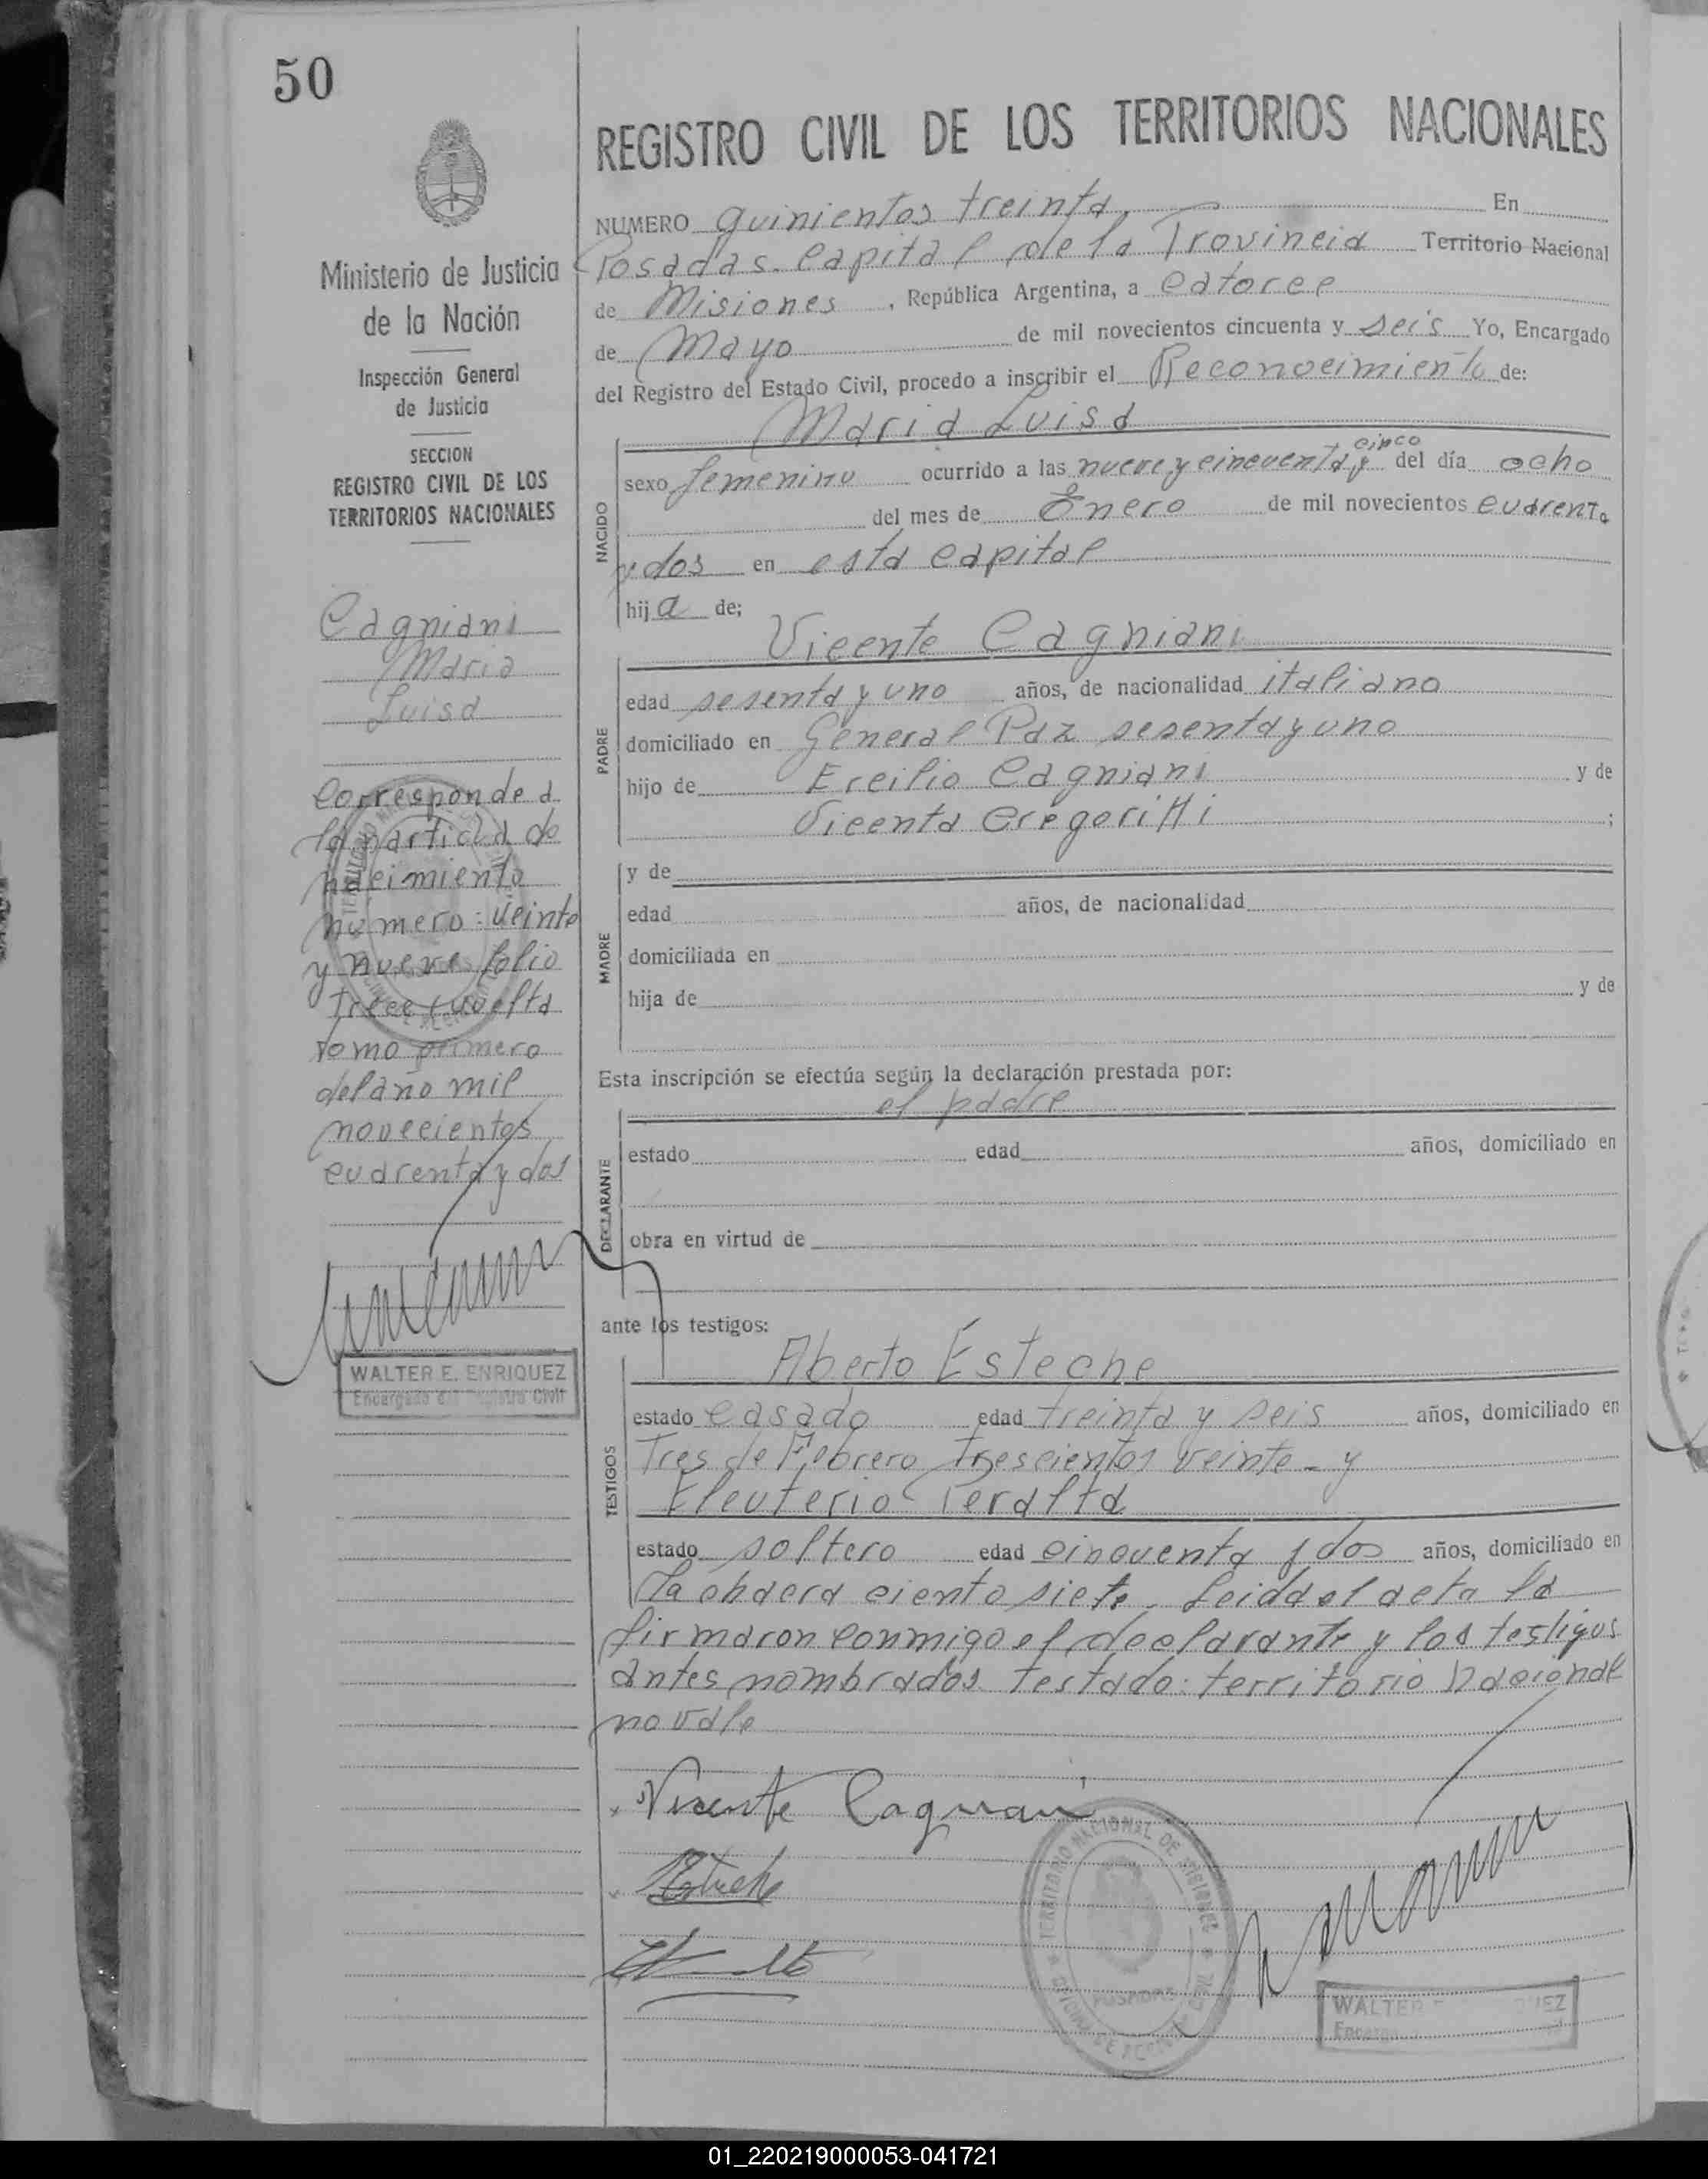 50
REGISTRO CIVIL DE LOS TERRITORIOS NACIONALES
Ministerio de Justicia
de la Nación
Inspección General
de Justicia
SECCION
REGISTRO CIVIL DE LOS
TERRITORIOS NACIONALES
Cagniani
Maria
Luisa
Corresponde a
la partida de
nacimiento
número: veinte
y nueve folio
trece vuelta
tomo primero
del año mil
novecientos
cuarenta y dos
WALTER E. ENRIQUEZ
Encargado del Registro Civil
NUMERO quinientos treinta En
Posadas. Capital de la Provincia Territorio Nacional
de Misiones, República Argentina, a catorce
de Mayo de mil novecientos cincuenta y seis Yo, Encargado
del Registro del Estado Civil, procedo a inscribir el Reconocimiento de:
Maria Luisa
NACIDO
sexo femenino ocurrido a las nueve y cincuenta y cinco del día ocho
del mes de Enero de mil novecientos cuarenta
y dos en esta capital
hija de;
Vicente Cagniani
PADRE
edad sesenta y uno años, de nacionalidad italiano
domiciliado en General Paz sesenta y uno
hijo de Ercilio Cagniani y de
Vicenta Gregoritti;
MADRE
y de
edad años, de nacionalidad
domiciliada en
hija de y de
Esta inscripción se efectúa según la declaración prestada por:
el padre
DECLARANTE
estado edad años, domiciliado en
obra en virtud de
ante los testigos:
Alberto Esteche
TESTIGOS
estado casado edad treinta y seis años, domiciliado en
Tres de Febrero trescientos veinte - y
Eleuterio Peralta
estado soltero edad cincuenta y dos años, domiciliado en
La chacra ciento siete. Leida el acta la
firmaron conmigo el declarante y los testigos
antes nombrados. testado: territorio Nacional
no vale
Vicente Cagniani
Esteche
TERRITORIO NACIONAL DE MISIONES
POSADAS
WALTER E ENRIQUEZ
01_220219000053-041721